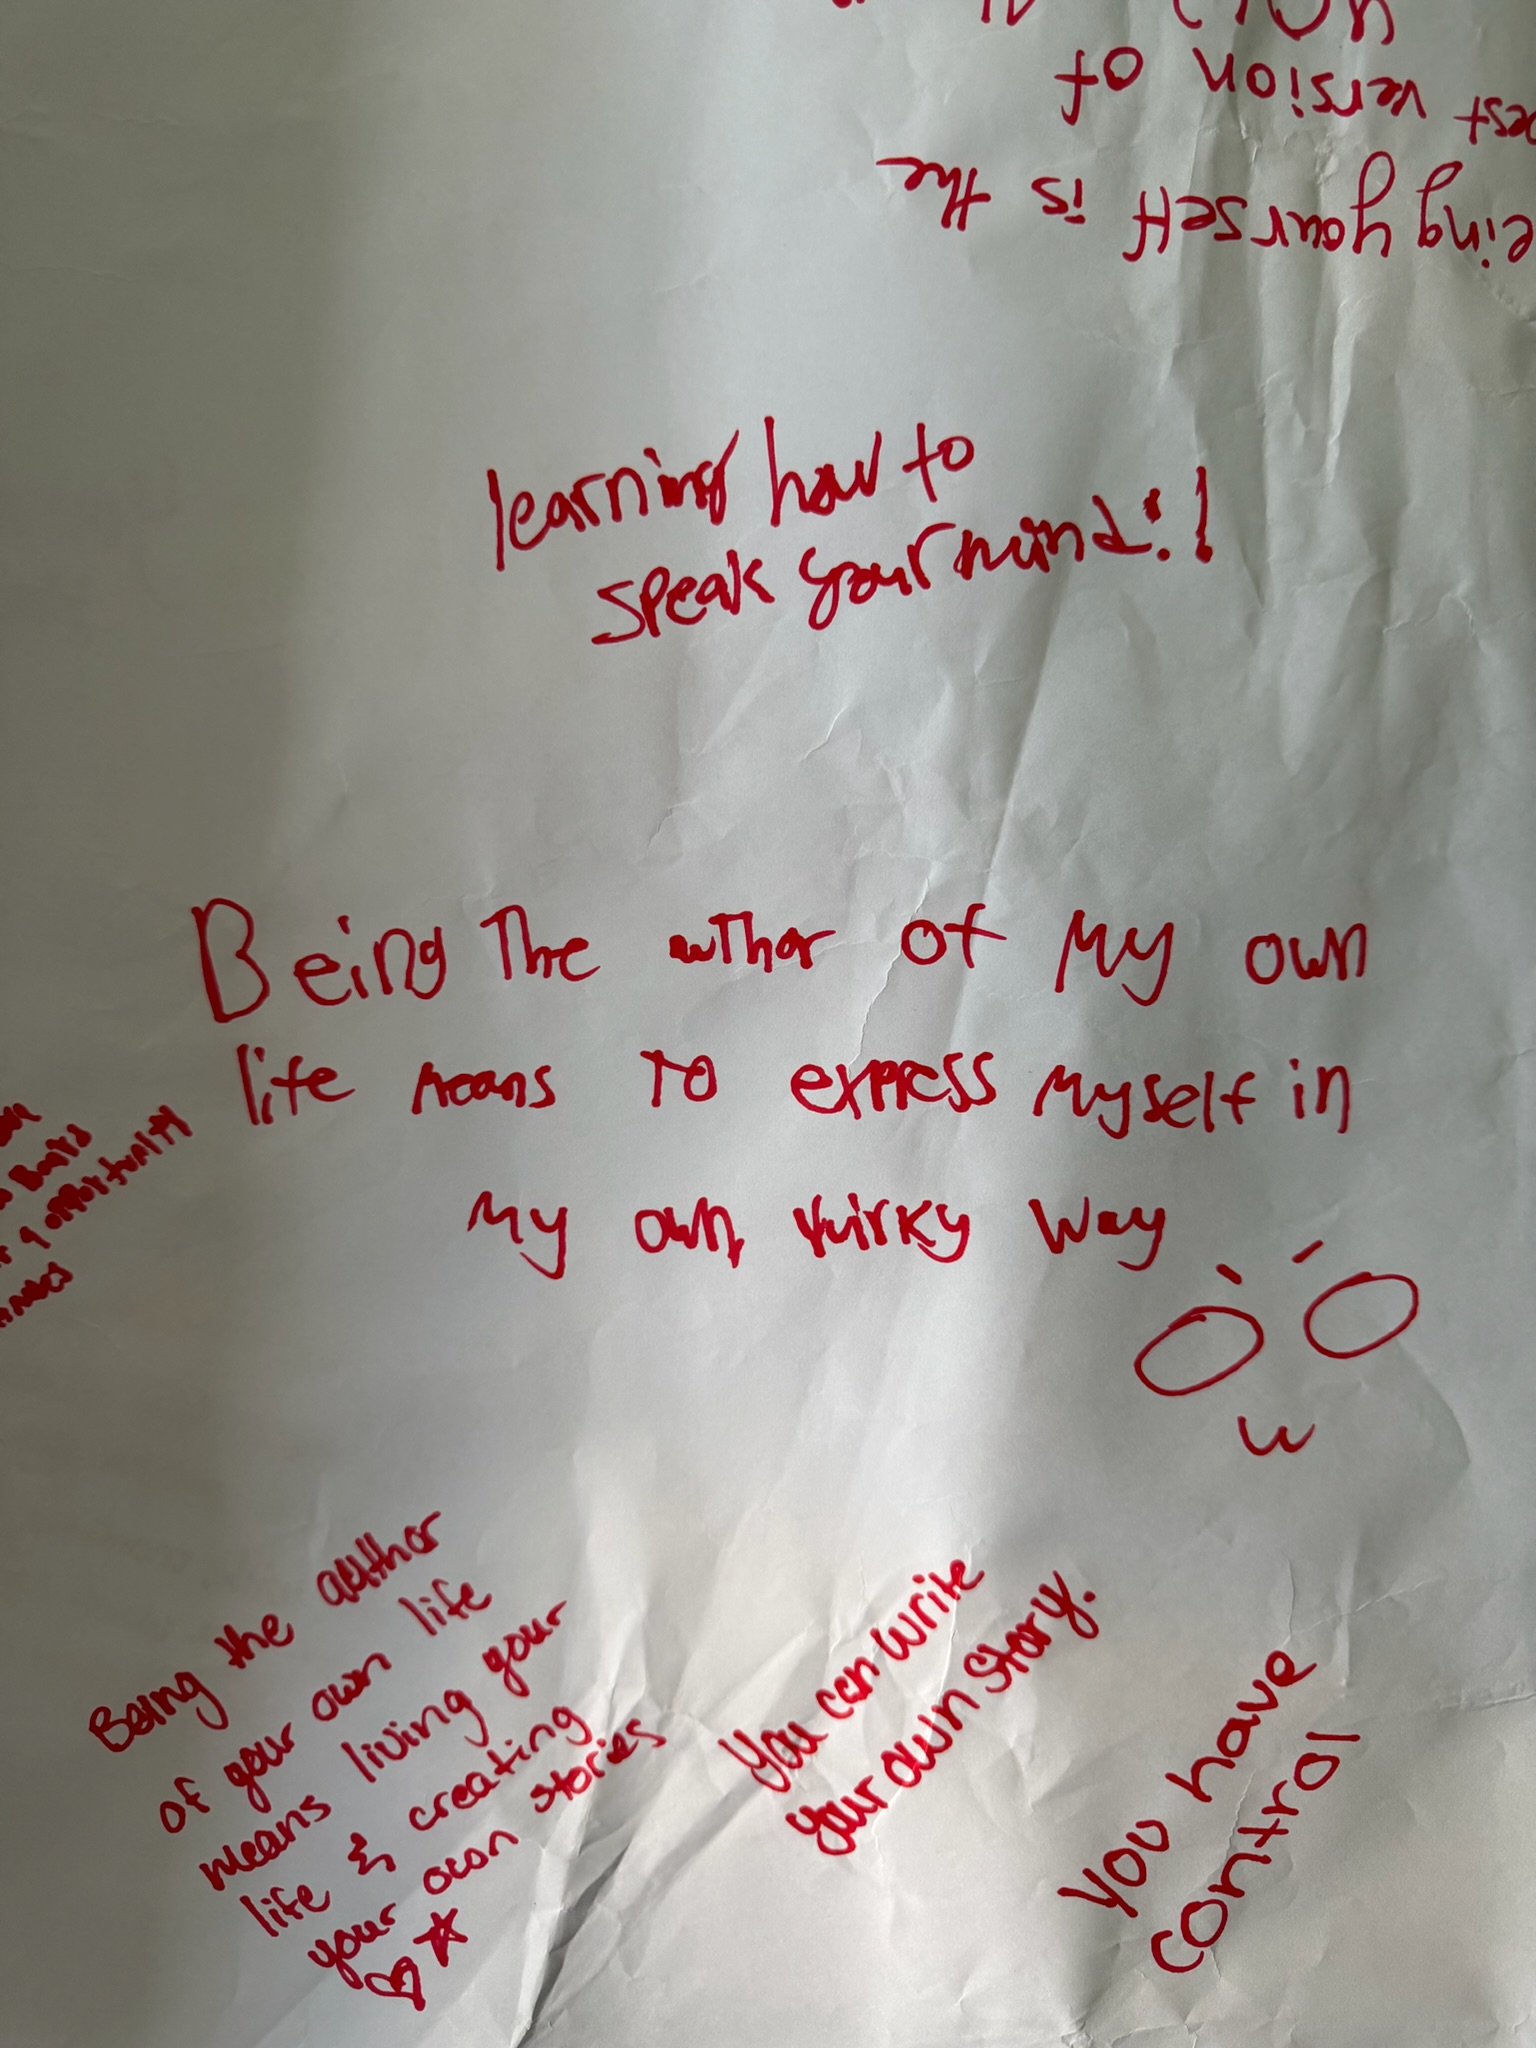 yourself is the
version of
learning how to
speak your mind:!
Being The author of My own
life means To express Myself in
My own, quirky way
opportunity
Being the author
of your own life
means living your
life & creating
your own stories
You can write
your own story.
You have
control